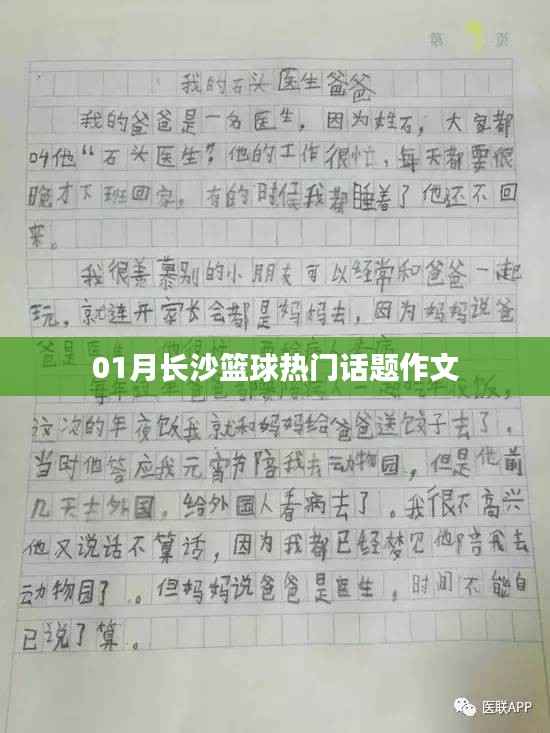 第 页
我的石头医生爸爸
我的爸爸是一名医生，因为姓石，大家都
叫他“石头医生”。他的工作很忙，每天都要很
晚才下班回家。有的时候我都睡着了他还不回
来。
我很羡慕别的小朋友可以经常和爸爸一起
玩，就连开家长会都是妈妈去，因为妈妈说爸
爸是医生
01月长沙篮球热门话题作文
这次的年夜饭我就和妈妈给爸爸送饺子去了。
当时他答应我元宵节陪我去动物园，但是他前
几天去外国，给外国人看病去了。我很不高兴
他又说话不算话，因为我都已经梦见他陪我去
动物园了。但妈妈说爸爸是医生，时间不能自
己说了算。
医联APP